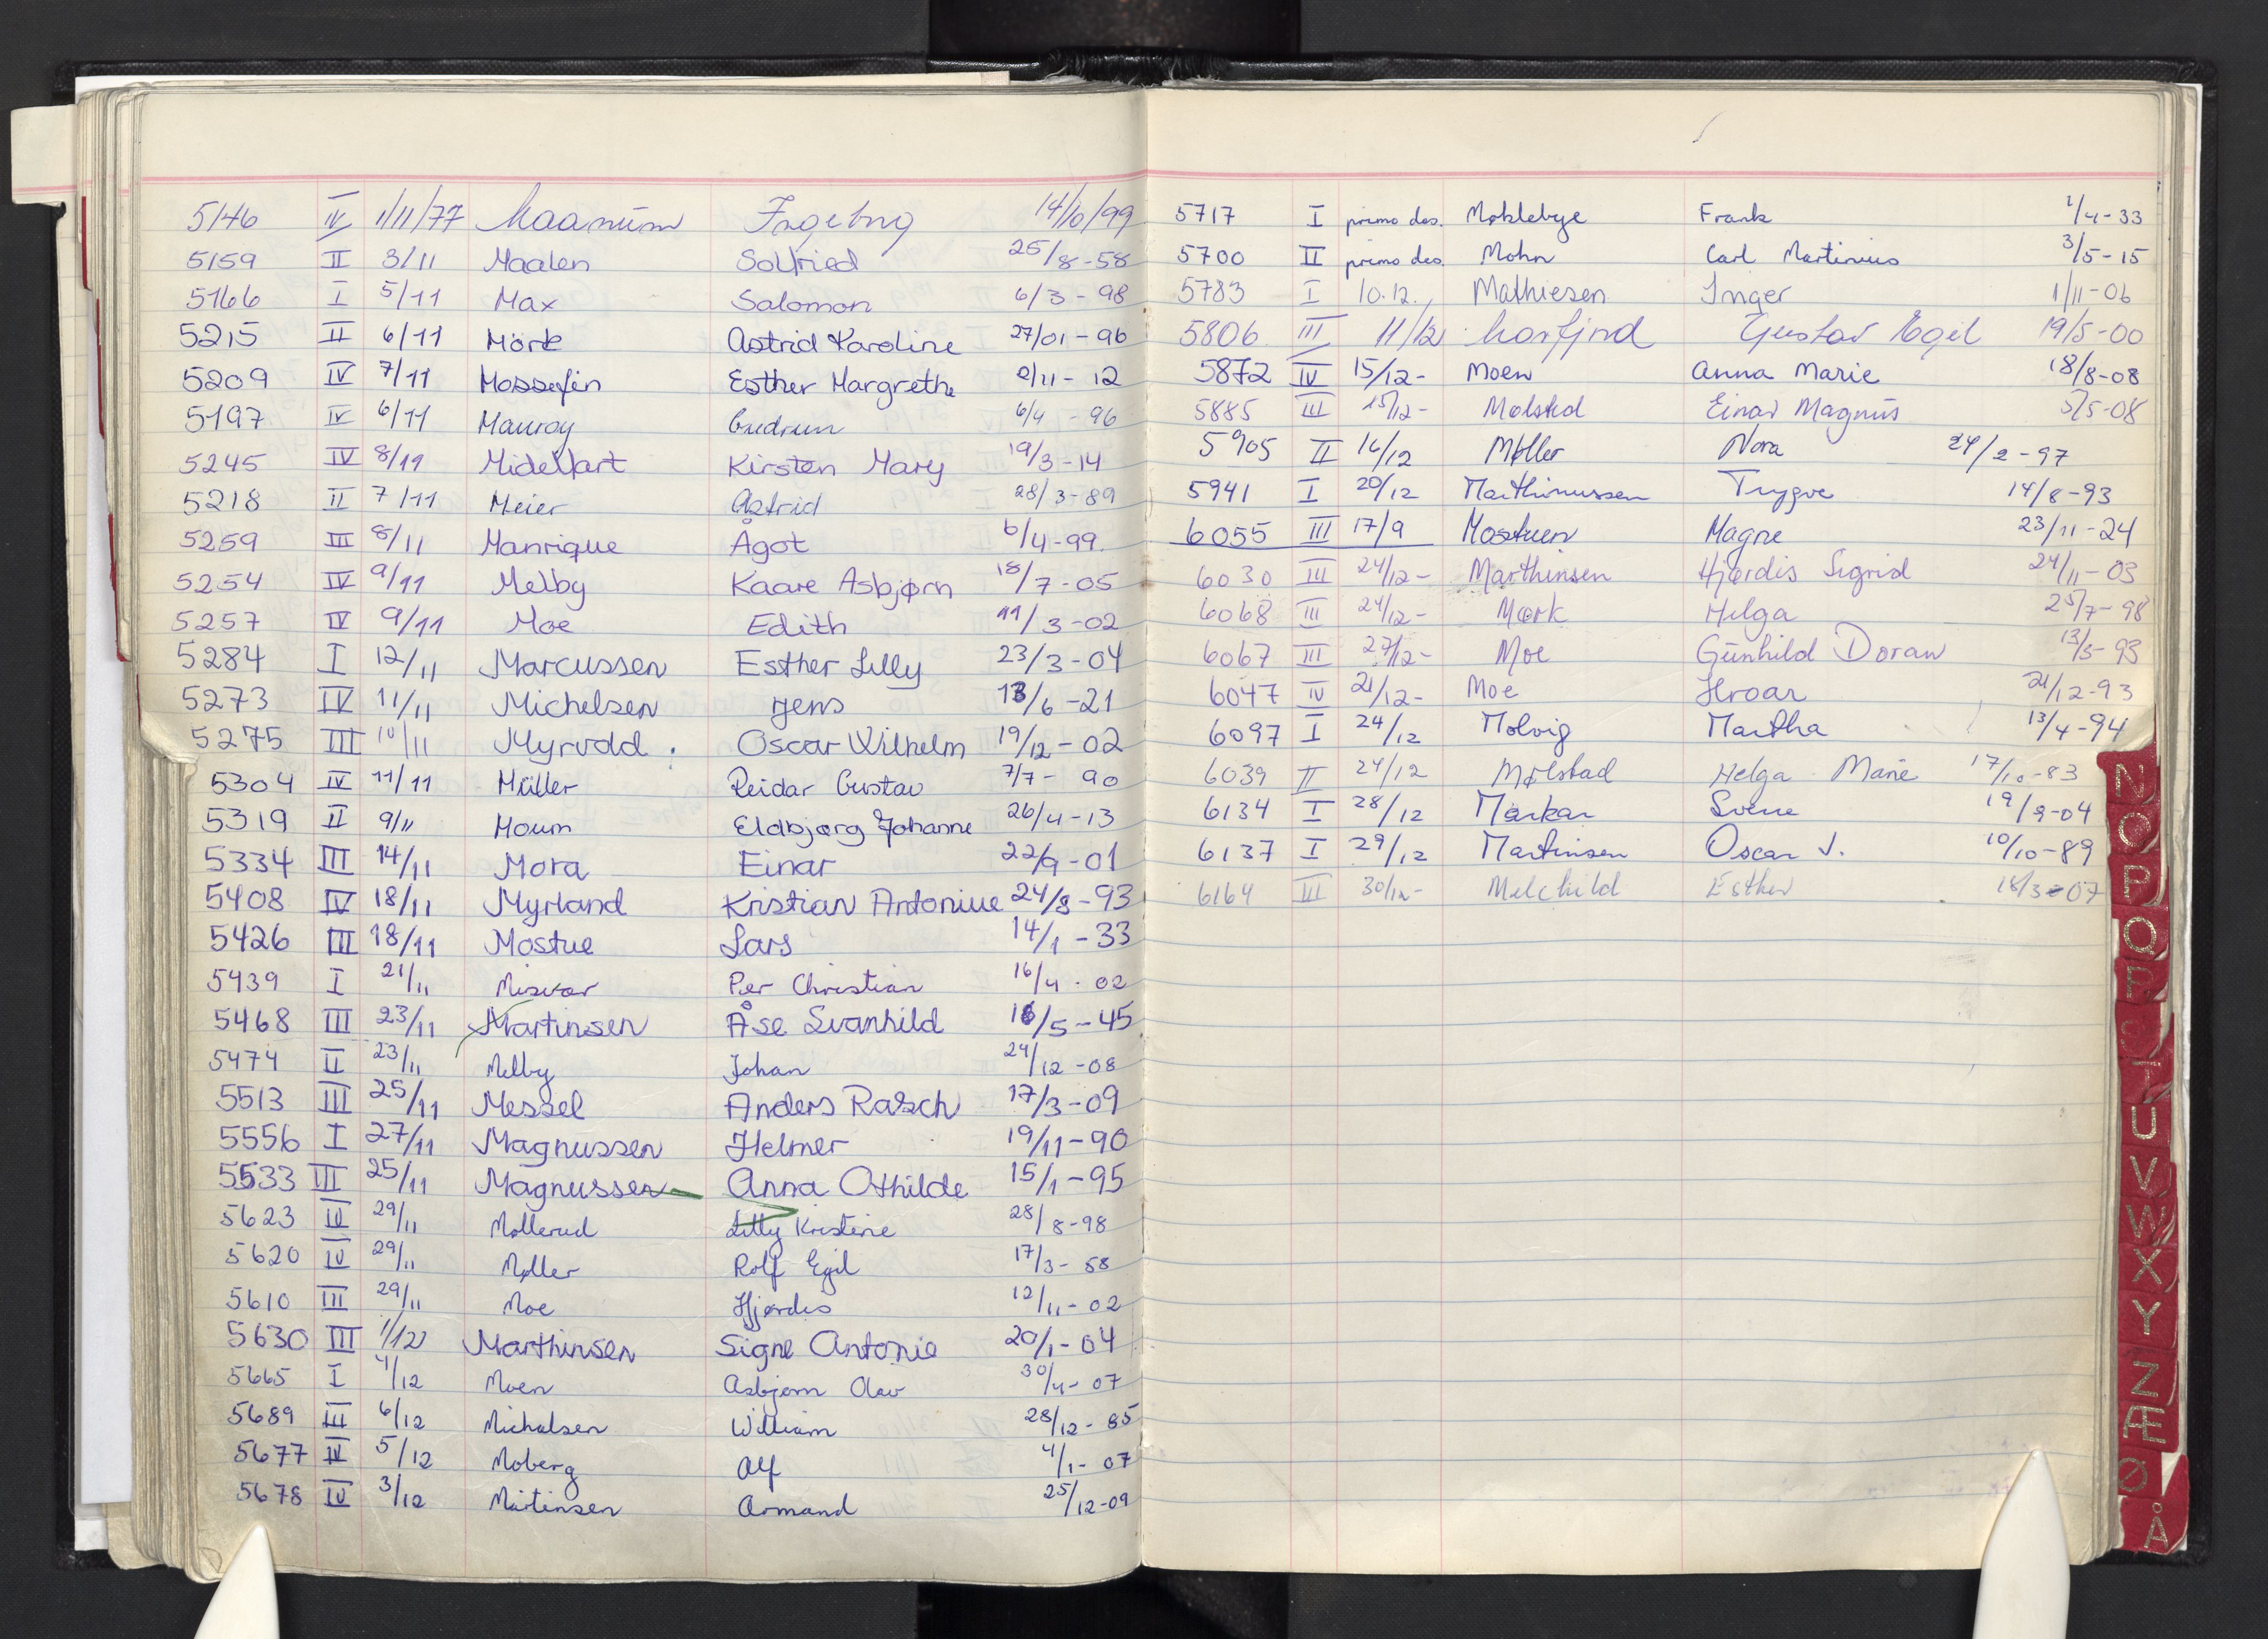 5146 IV 1/11/77 Maanum Ingebrg 14/10/99
5159 II 3/11 Maalen Solfried 25/8-58
5166 I 5/11 Max Salomon 6/3-98
5215 II 6/11 Mörk Astrid Karoline 27/01-96
5209 IV 7/11 Mossefin Esther Margrethe 2/11-12
5197 IV 6/11 Mauroy Gudrun 6/4-96
5245 IV 8/11 Midelfart Kirsten Mary 19/3-14
5218 II 7/11 Meier Astrid 28/3-89
5259 III 8/11 Manrique Ågot 6/4-99
5254 IV 9/11 Melby Kaare Asbjørn 18/7-05
5257 IV 9/11 Moe Edith 11/3-02
5284 I 12/11 Marcussen Esther Lilly 23/3-04
5273 IV 11/11 Michelsen Jens 13/6-21
5275 III 10/11 Myrvold Oscar Wilhelm 19/12-02
5304 IV 11/11 Müller Reidar Gustav 7/7-90
5319 II 9/11 Moum Eldbjørg Johanne 26/4-13
5334 III 14/11 Mora Einar 22/9-01
5408 IV 18/11 Myrland Kristian Antonius 24/8-93
5426 III 18/11 Mostue Lars 14/1-33
5439 I 21/11 Misvær Per Christian 16/4-02
5468 III 23/11 Martinsen Åse Svanhild 16/5-45
5474 II 23/11 Melby Johan 24/12-08
5513 III 25/11 Messel Anders Rasch 17/3-09
5556 I 27/11 Magnussen Helmer 19/11-90
5533 III 25/11 Magnussen Anna Othilde 15/1-95
5623 II 29/11 Møllerud Lilly Kristine 28/8-98
5620 IV 29/11 Møller Rolf Egil 17/3-58
5610 III 29/11 Moe Hjørdis 12/11-02
5630 III 1/12 Marthinsen Signe Antonie 20/1-04
5665 I 4/12 Moen Asbjørn Olav 30/4-07
5689 III 6/12 Michalsen William 28/12-85
5677 IV 5/12 Moberg Alf 4/1-07
5678 IV 3/12 Martinsen Armand 25/12-09
5717 I primo des. Moklebye Frank 2/4-33
5700 II primo des. Mohn Carl Martinius 3/5-15
5783 I 10.12. Mathiesen Inger 1/11-06
5806 III 11/12 Morfjord Gustav Egil 19/5-00
5872 IV 15/12- Moen Anna Marie 18/8-08
5885 III 15/12- Mølstad Einar Magnus 5/5-08
5905 II 16/12 Møller Nora 24/2-97
5941 I 20/12 Marthinussen Trygve 14/8-93
6055 III 17/9 Mostuen Magne 23/11-24
6030 III 24/12- Marthinsen Hjørdis Sigrid 24/11-03
6068 III 24/12- Mørk Helga 25/7-98
6067 III 27/12- Moe Gunhild Doran 13/5-93
6047 IV 21/12- Moe Hroar 21/12-93
6097 I 24/12 Molvig Martha 13/4-94
6039 II 24/12 Mølstad Helga Marie 17/10-83
6134 I 28/12 Markar Sverre 19/9-04
6137 I 29/12 Martinsen Oscar J. 10/10-89
6164 III 30/12- Melchild Esther 18/3-07
N
O
P
Q
R
S
T
U
V
W
X
Y
Z
Æ
Ø
Å